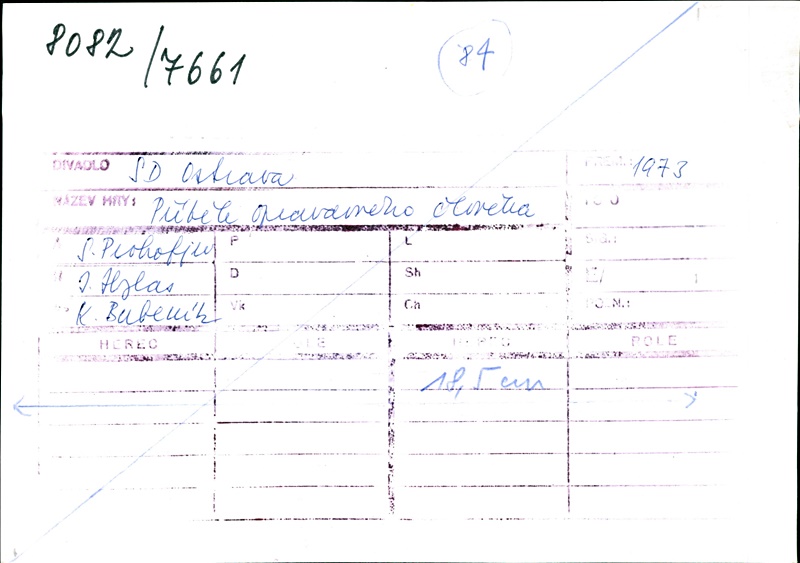 8082/7661
84
DIVADLO SD Ostrava 1973
NÁZEV HRY: Příběh opravdového člověka
S. Prokofjev P L
I. Hylas D Sh
K. Bubeník Vk Ch
HEREC ROLE HEREC ROLE
18,5 cm